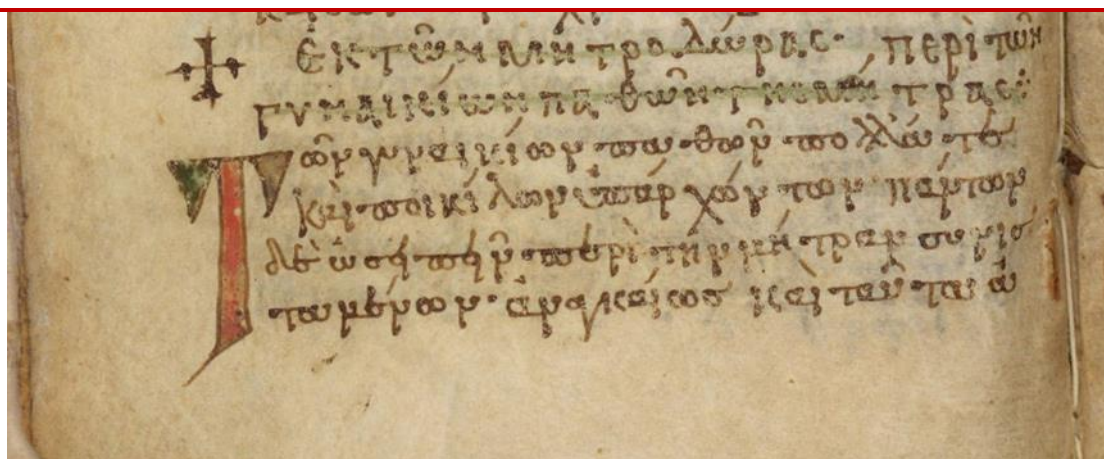 ἐκ τῶν μητροδώρας· περὶ τῶν
γυναικίων παθῶν τῆς μήτρας:
Τῶν γυναικίων παθῶν πολλῶν τε
καὶ ποικίλων ὑπαρχόντων πάντων
δὲ ὡς εἰπεῖν περὶ τὴν μήτραν συνισ
ταμένων· ἀναγκαίως καὶ ταῦτα ἀ